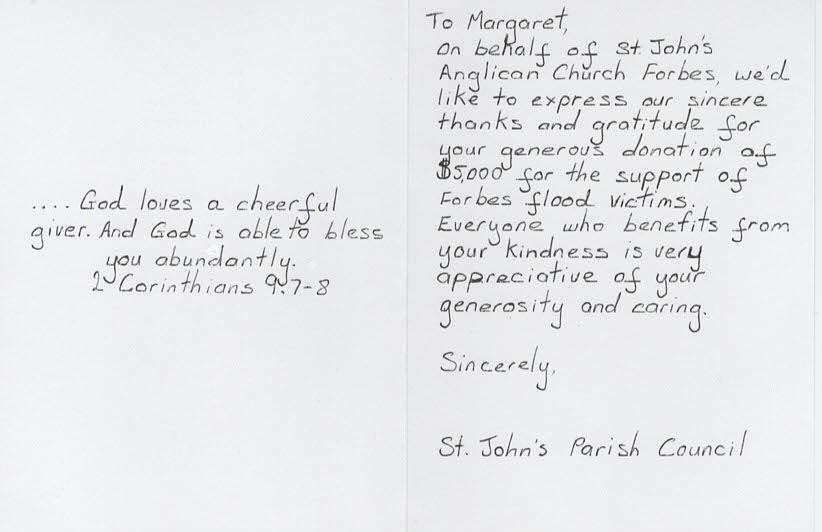 .... God loves a cheerful
giver. And God is able to bless
you abundantly.
2 Corinthians 9:7-8
To Margaret,
On behalf of St. John's
Anglican Church Forbes, we'd
like to express our sincere
thanks and gratitude for
your generous donation of
$5,000 for the support of
Forbes flood victims.
Everyone who benefits from
your kindness is very
appreciative of your
generosity and caring.
Sincerely,
St. John's Parish Council